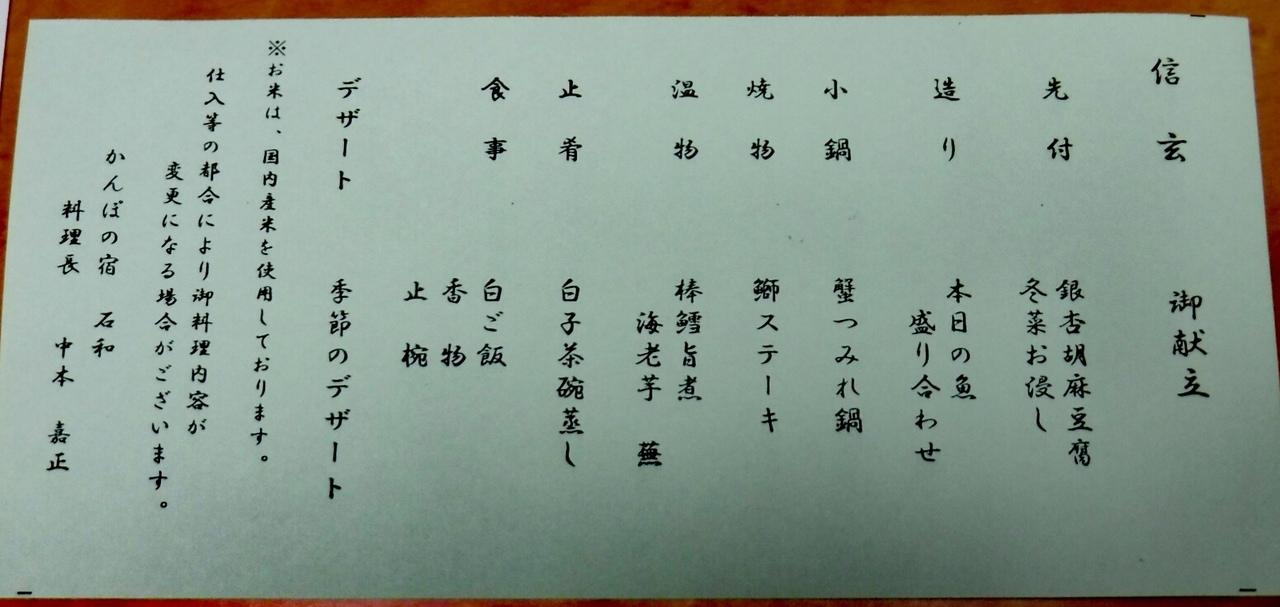 信玄 御献立
先付 銀杏胡麻豆腐
冬菜お浸し
造り 本日の魚
盛り合わせ
小鍋 蟹つみれ鍋
焼物 鰤ステーキ
温物 棒鱈旨煮
海老芋 蕪
止肴 白子茶碗蒸し
食事 白ご飯
香物
止椀
デザート 季節のデザート
※お米は、国内産米を使用しております。
仕入等の都合により御料理内容が
変更になる場合がございます。
かんぽの宿 石和
料理長 中本 嘉正